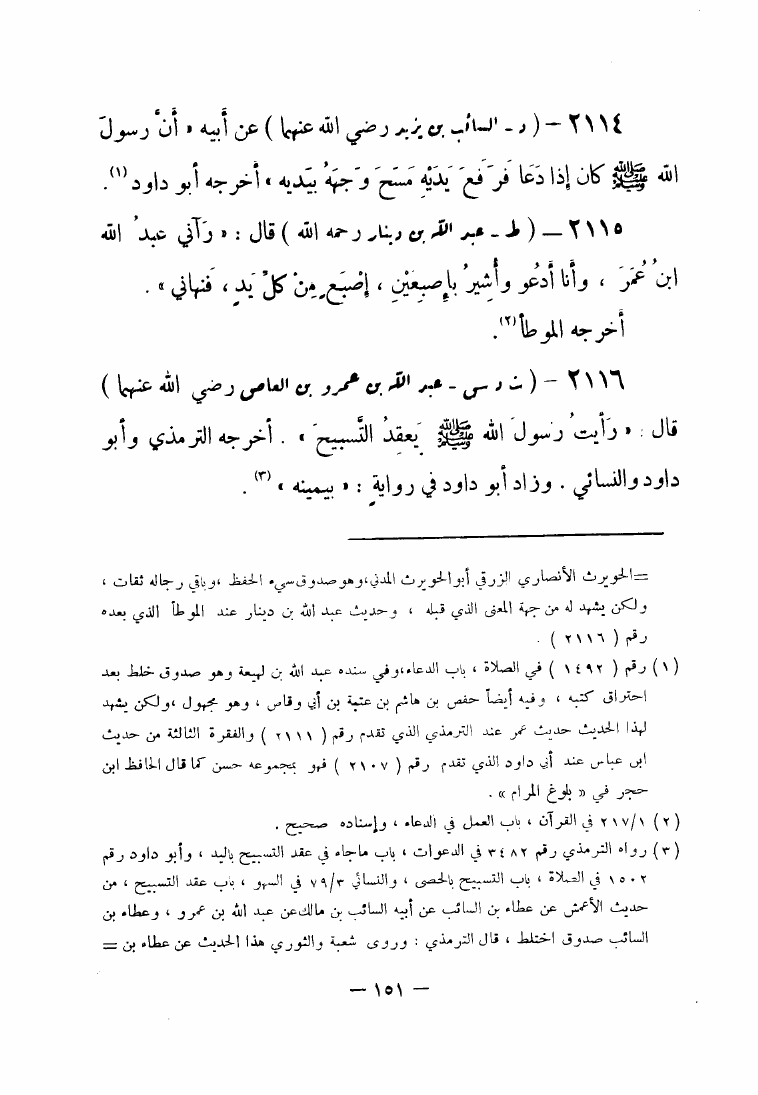 ٢١١٤ - ( د - السائب بن يزيد رضي الله عنهما ) عن أبيه « أَنَّ رسولَ
الله ﷺ كان إذا دَعَا فَرَفَعَ يَدَيْهِ مَسَحَ وَجهَهُ بيَديه » أخرجه أبو داود (١).
٢١١٥ — ( ط - عبد الله بن دينار رحمه الله ) قال : « رَآني عبدُ الله
ابنُ عُمَرَ ، وأَنا أَدُعُو وأُشِيرُ بإصبِعَيْنِ ، إصْبَعٍ مِنْ كلِّ يَدٍ ، فَنهاني » .
أخرجه الموطأ (٢).
٢١١٦ - ( ت د س - عبد الله بن عمرو بن العاص رضي الله عنهما )
قال : « رَأَيتُ رَسولَ الله ﷺ يَعقِدُ التَّسبيحَ » . أخرجه الترمذي وأبو
داود والنسائي . وزاد أبو داود في روايةٍ : « بيمينه » (٣) .
=الحويرث الأنصاري الزرقي أبو الحويرث المدني،وهو صدوق سيء الحفظ ،وباقي رجاله ثقات ،
ولكن يشهد له من جهة المعنى الذي قبله ، وحديث عبد الله بن دينار عند الموطأ الذي بعده
رقم ( ٢١١٦ ) .
(١) رقم ( ١٤٩٢ ) في الصلاة ، باب الدعاء،وفي سنده عبد الله بن لهيعة وهو صدوق خلط بعد
احتراق كتبه ، وفيه أيضاً حفص بن هاشم بن عتبة بن أبي وقاص ، وهو مجهول ،ولكن يشهد
لهذا الحديث حديث عمر عند الترمذي الذي تقدم رقم ( ٢١١١ ) والفقرة الثالثة من حديث
ابن عباس عند أبي داود الذي تقدم رقم ( ٢١٠٧ ) فهو بمجموعه حسن كما قال الحافظ ابن
حجر في « بلوغ المرام » .
(٢) ٢١٧/١ في القرآن ، باب العمل في الدعاء ، وإسناده صحيح .
(٣) رواه الترمذي رقم ٣٤٨٢ في الدعوات ، باب ماجاء في عقد التسبيح باليد ، وأبو داود رقم
١٥٠٢ في الصلاة ، باب التسبيح بالحصى ، والنسائي ٧٩/٣ في السهو ، باب عقد التسبيح ، من
حديث الأعمش عن عطاء بن السائب عن أبيه السائب بن مالك عن عبد الله بن عمرو ، وعطاء بن
السائب صدوق اختلط ، قال الترمذي : وروى شعبة والثوري هذا الحديث عن عطاء بن =
— ١٥١ —